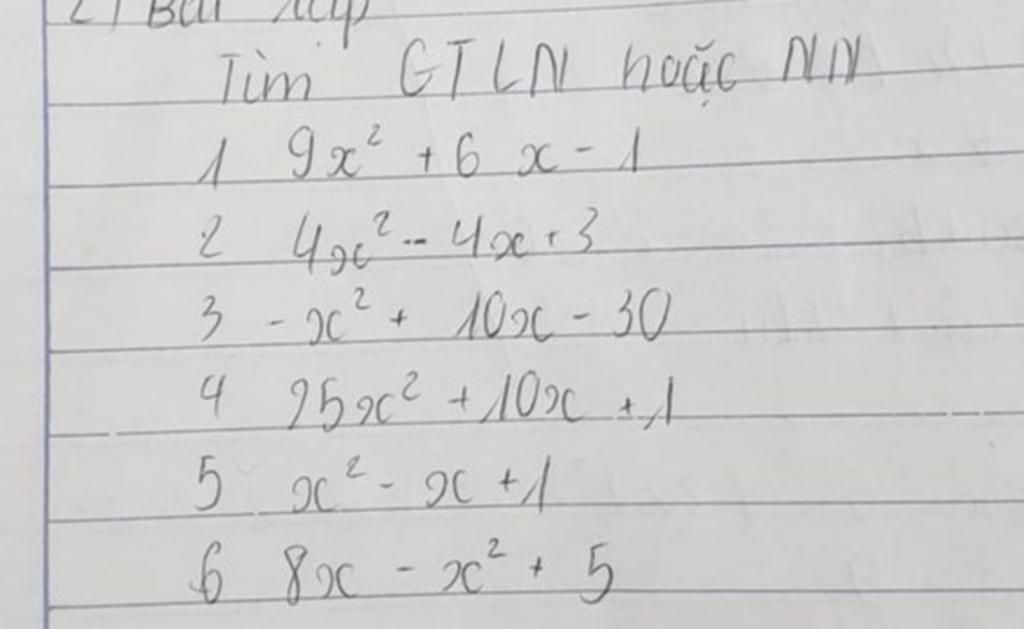 2) Bài tập
Tìm GTLN hoặc NN
1 9x² + 6 x - 1
2 4x² - 4x + 3
3 - x² + 10x - 30
4 25x² + 10x + 1
5 x² - x + 1
6 8x - x² + 5